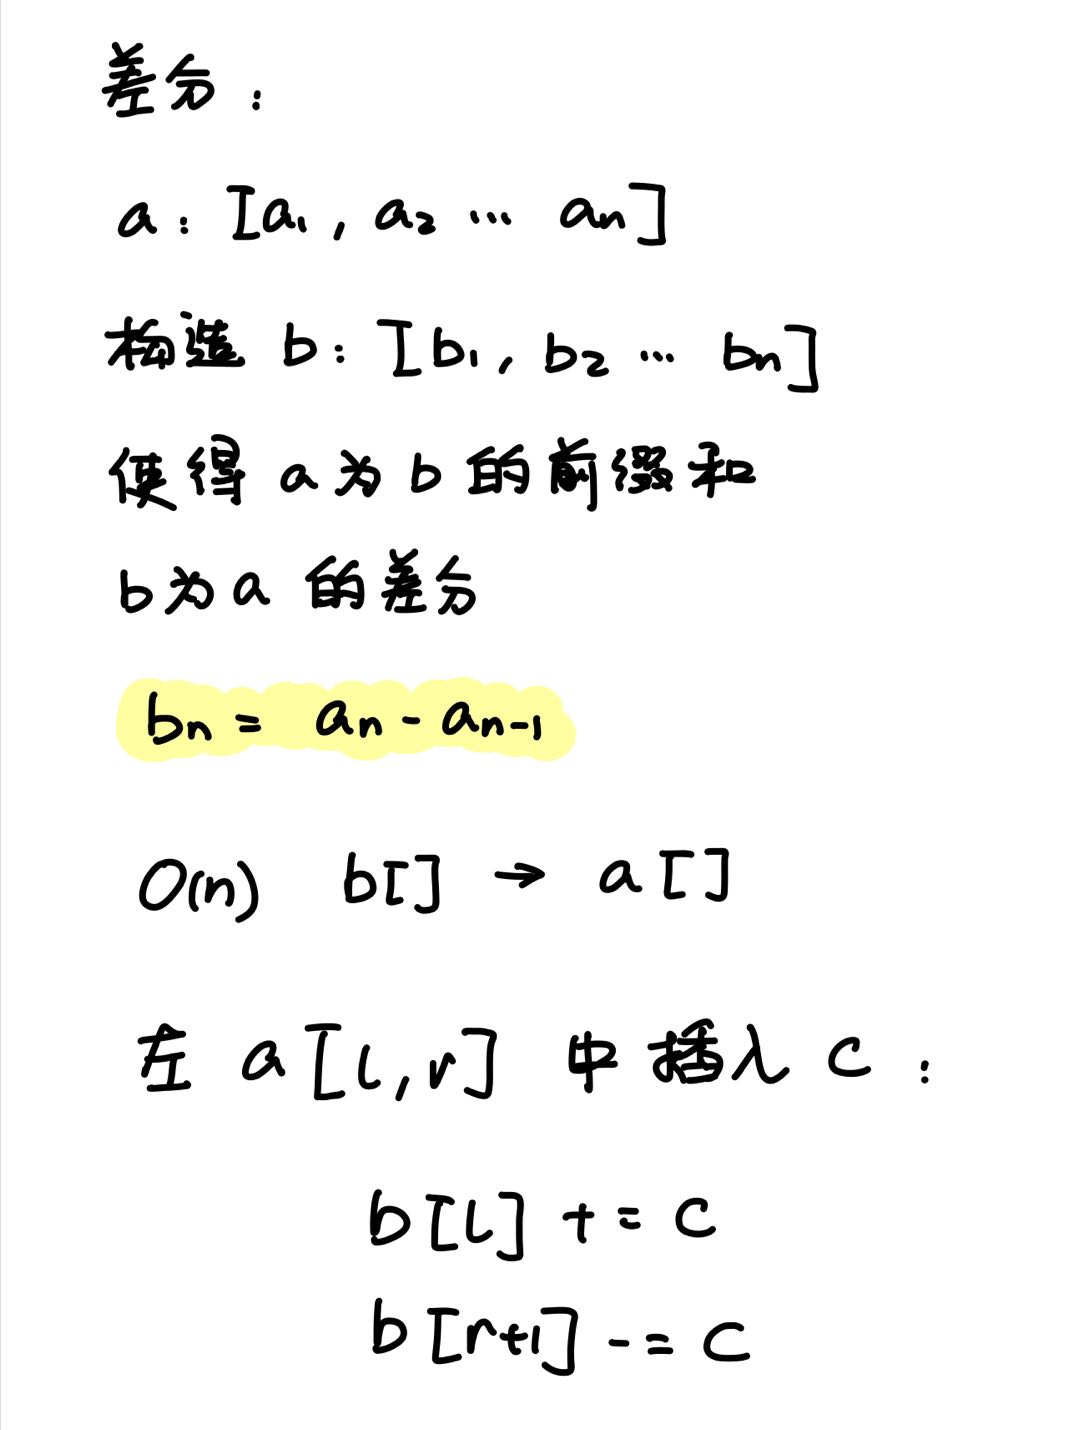 差分：
a：[a₁，a₂ … aₙ]
构造 b：[b₁，b₂ … bₙ]
使得 a 为 b 的前缀和
b 为 a 的差分
bₙ = aₙ - aₙ₋₁
O(n) b[] → a[]
左 a[l,r] 中插入 c：
b[l] += c
b[r+1] -= c